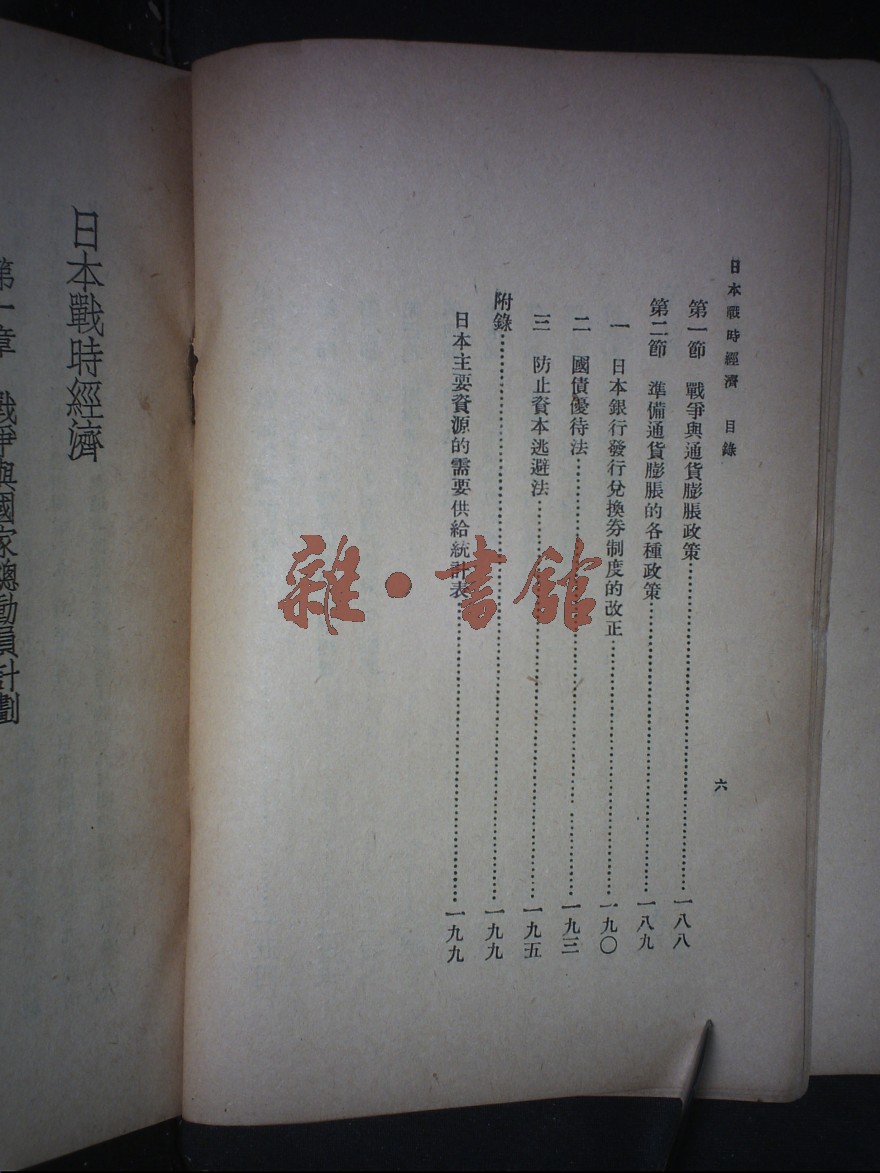 日本戰時經濟　目錄　六
第一節　戰爭與通貨膨脹政策……一八八
第二節　準備通貨膨脹的各種政策……一八九
一　日本銀行發行兌換券制度的改正……一九〇
二　國債優待法……一九三
三　防止資本逃避法……一九五
附錄……一九九
日本主要資源的需要供給統計表……一九九
日本戰時經濟
第一章　戰爭與國家總動員計劃
雜·書館